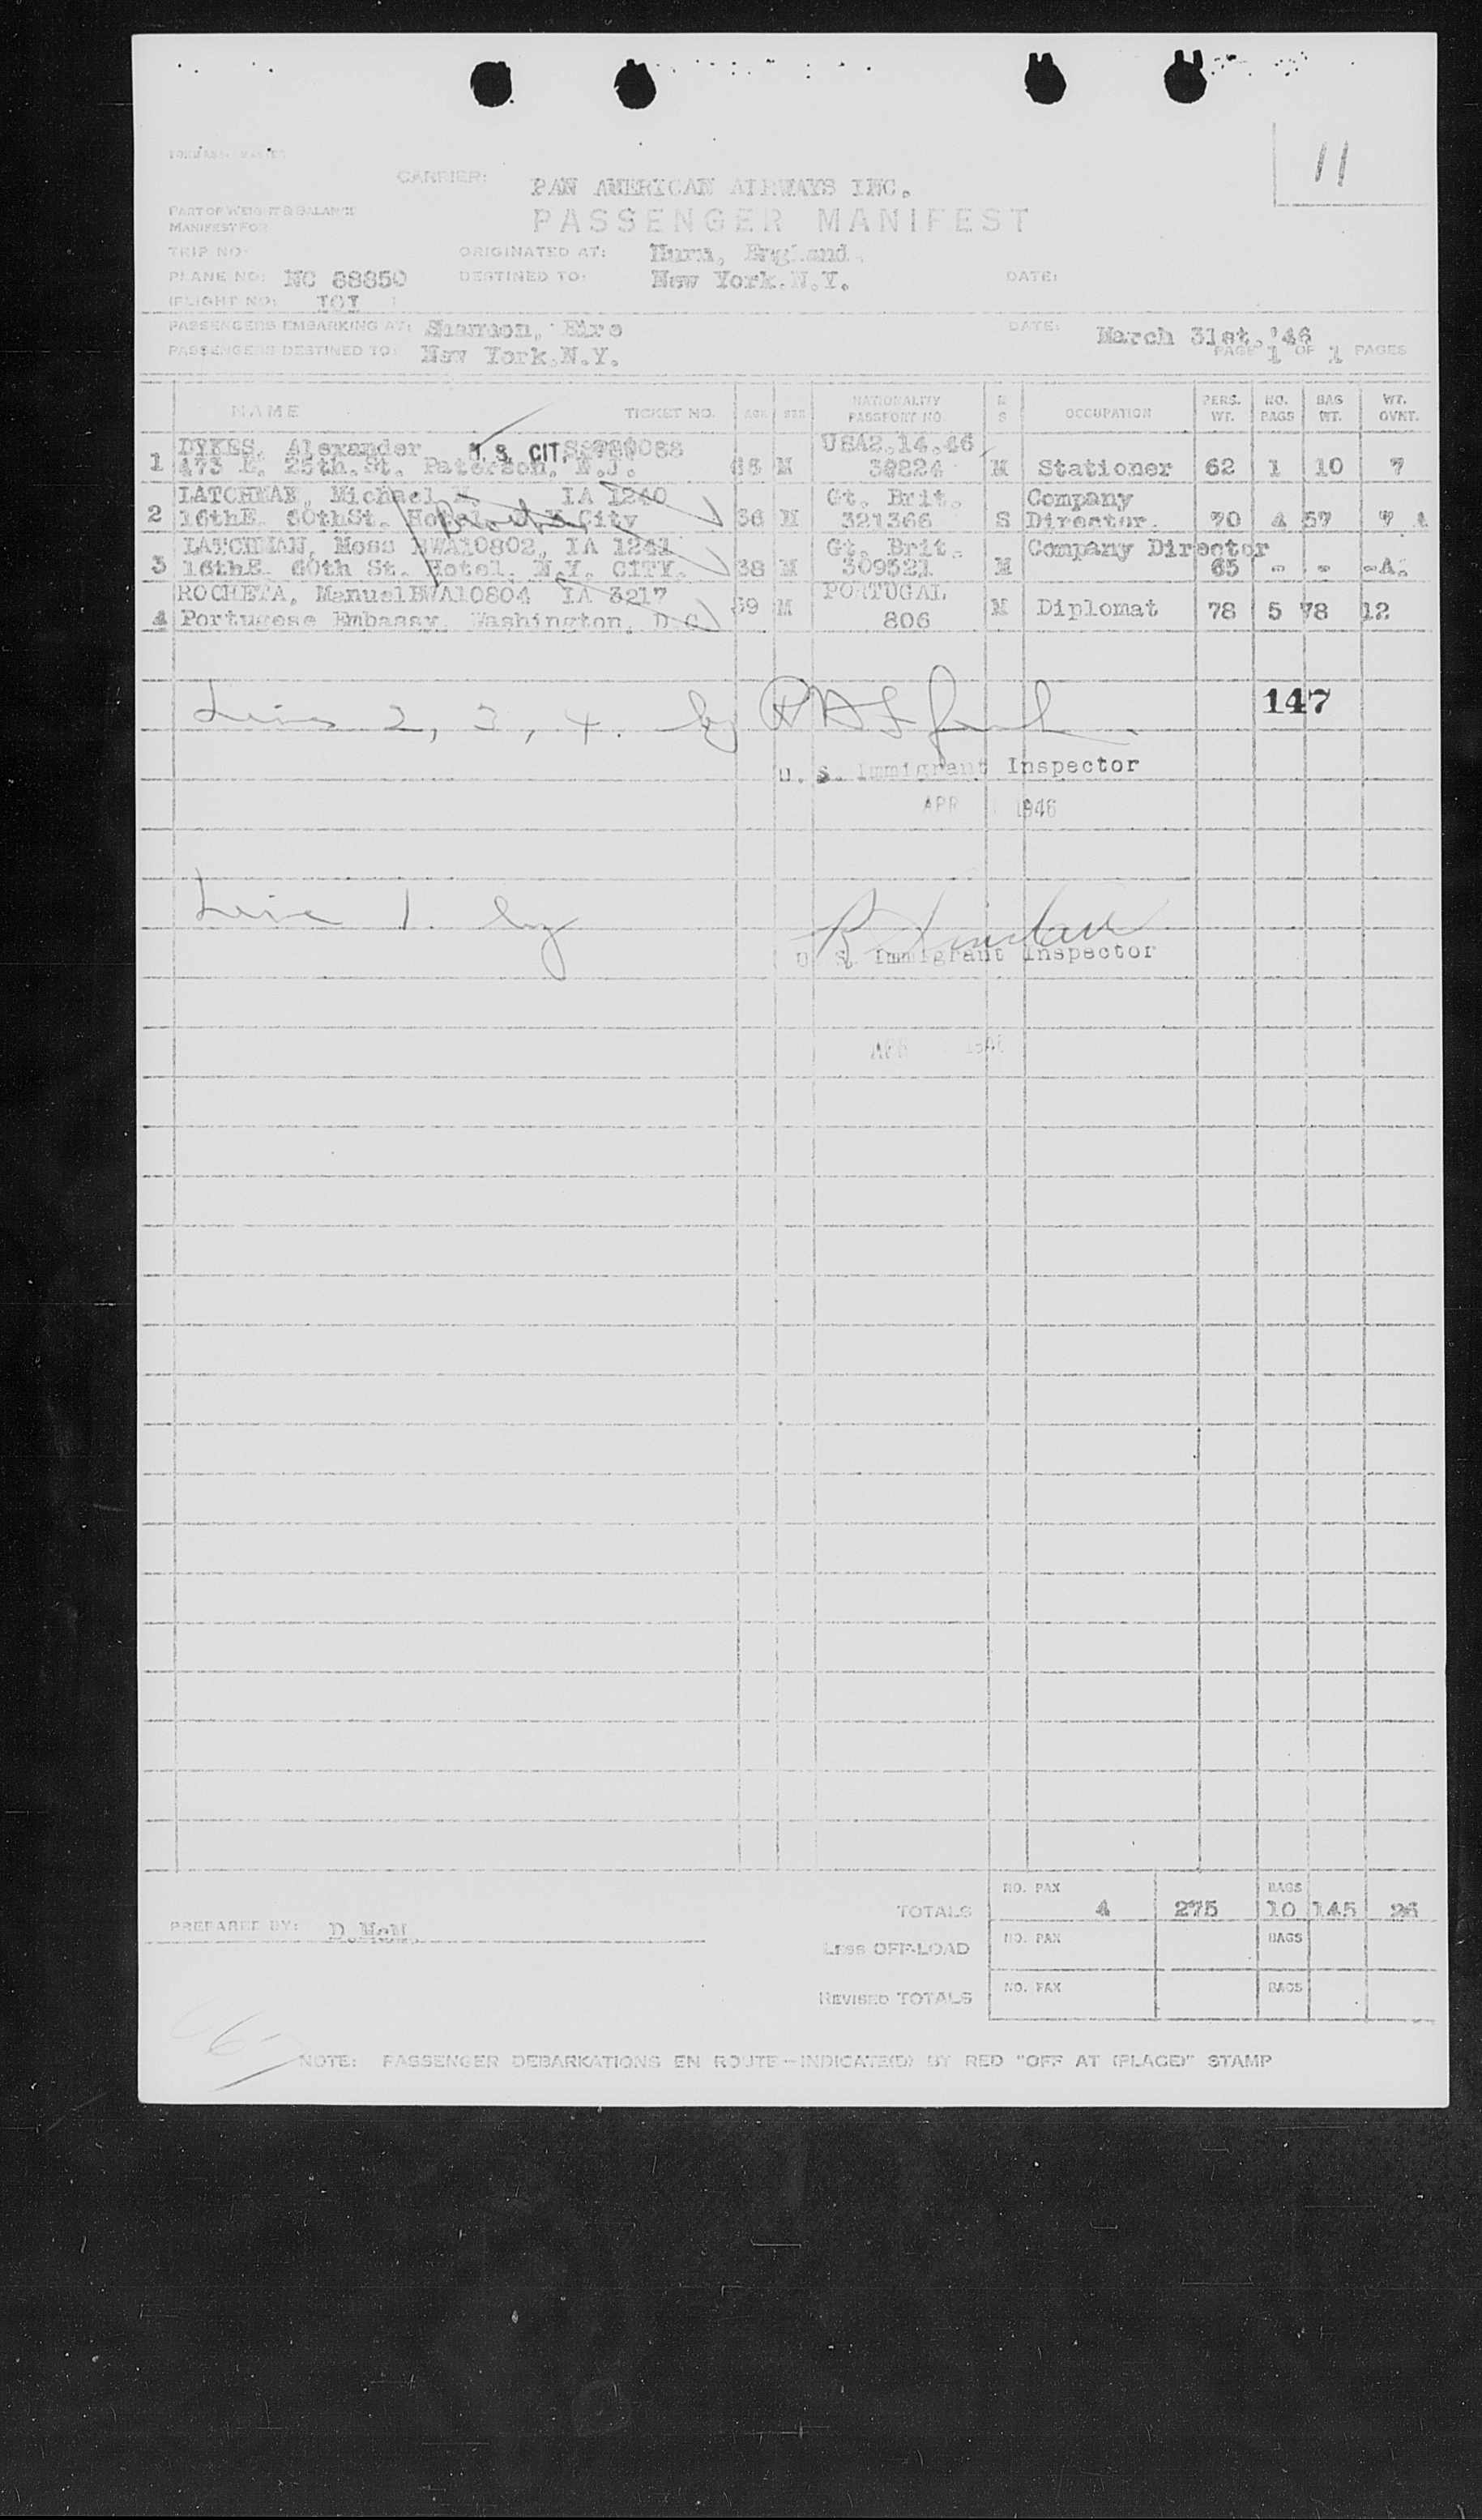 11
CARRIER: PAN AMERICAN AIRWAYS INC.
PART OF WEIGHT & BALANCE
PASSENGER MANIFEST
MANIFEST FOR
TRIP NO: ORIGINATED AT: Hurn, England.
PLANE NO: NC 88850 DESTINED TO: New York.N.Y. DATE:
FLIGHT NO: 101
PASSENGERS EMBARKING AT: Shannon, Eire DATE: March 31st.'46
PASSENGERS DESTINED TO: New York.N.Y. PAGE 1 OF 1 PAGES
NAME TICKET NO. AGE SEX NATIONALITY PASSPORT NO. M S OCCUPATION PERS. WT. NO. PAGS BAG WT. WT. OVNT.
DYKES, Alexander U.S. CIT. USA2.14.46
1 473 E. 25th.St. Paterson, N.J. M 39224 M Stationer 62 1 10 7
LATCHMAN, Michael IA 1240 Gt. Brit. Company
2 16thE. 60thSt. Hotel. City 36 M 321366 S Director. 70 4 57 7
LATCHMAN, Moss BWA10802, IA 1241 Gt. Brit. Company Director
3 16thE. 60th St. Hotel. N.Y. CITY. 38 M 309521 M 65 - -
ROCHETA, Manuel BWA10804 IA 3217 PORTUGAL
4 Portugese Embassy, Washington, D.C. 39 M 806 M Diplomat 78 5 78 12
147
Lines 2, 3, 4. by
U. S. Immigrant Inspector
APR 1946
Line 1. by
U. S. Immigrant Inspector
APR 1946
NO. PAX BAGS
TOTALS 4 275 10 145 26
PREPARED BY: D.McM.
NO. PAX BAGS
Less OFF-LOAD
NO. PAX BAGS
REVISED TOTALS
NOTE: PASSENGER DEBARKATIONS EN ROUTE—INDICATE(D) BY RED "OFF AT (PLACE)" STAMP